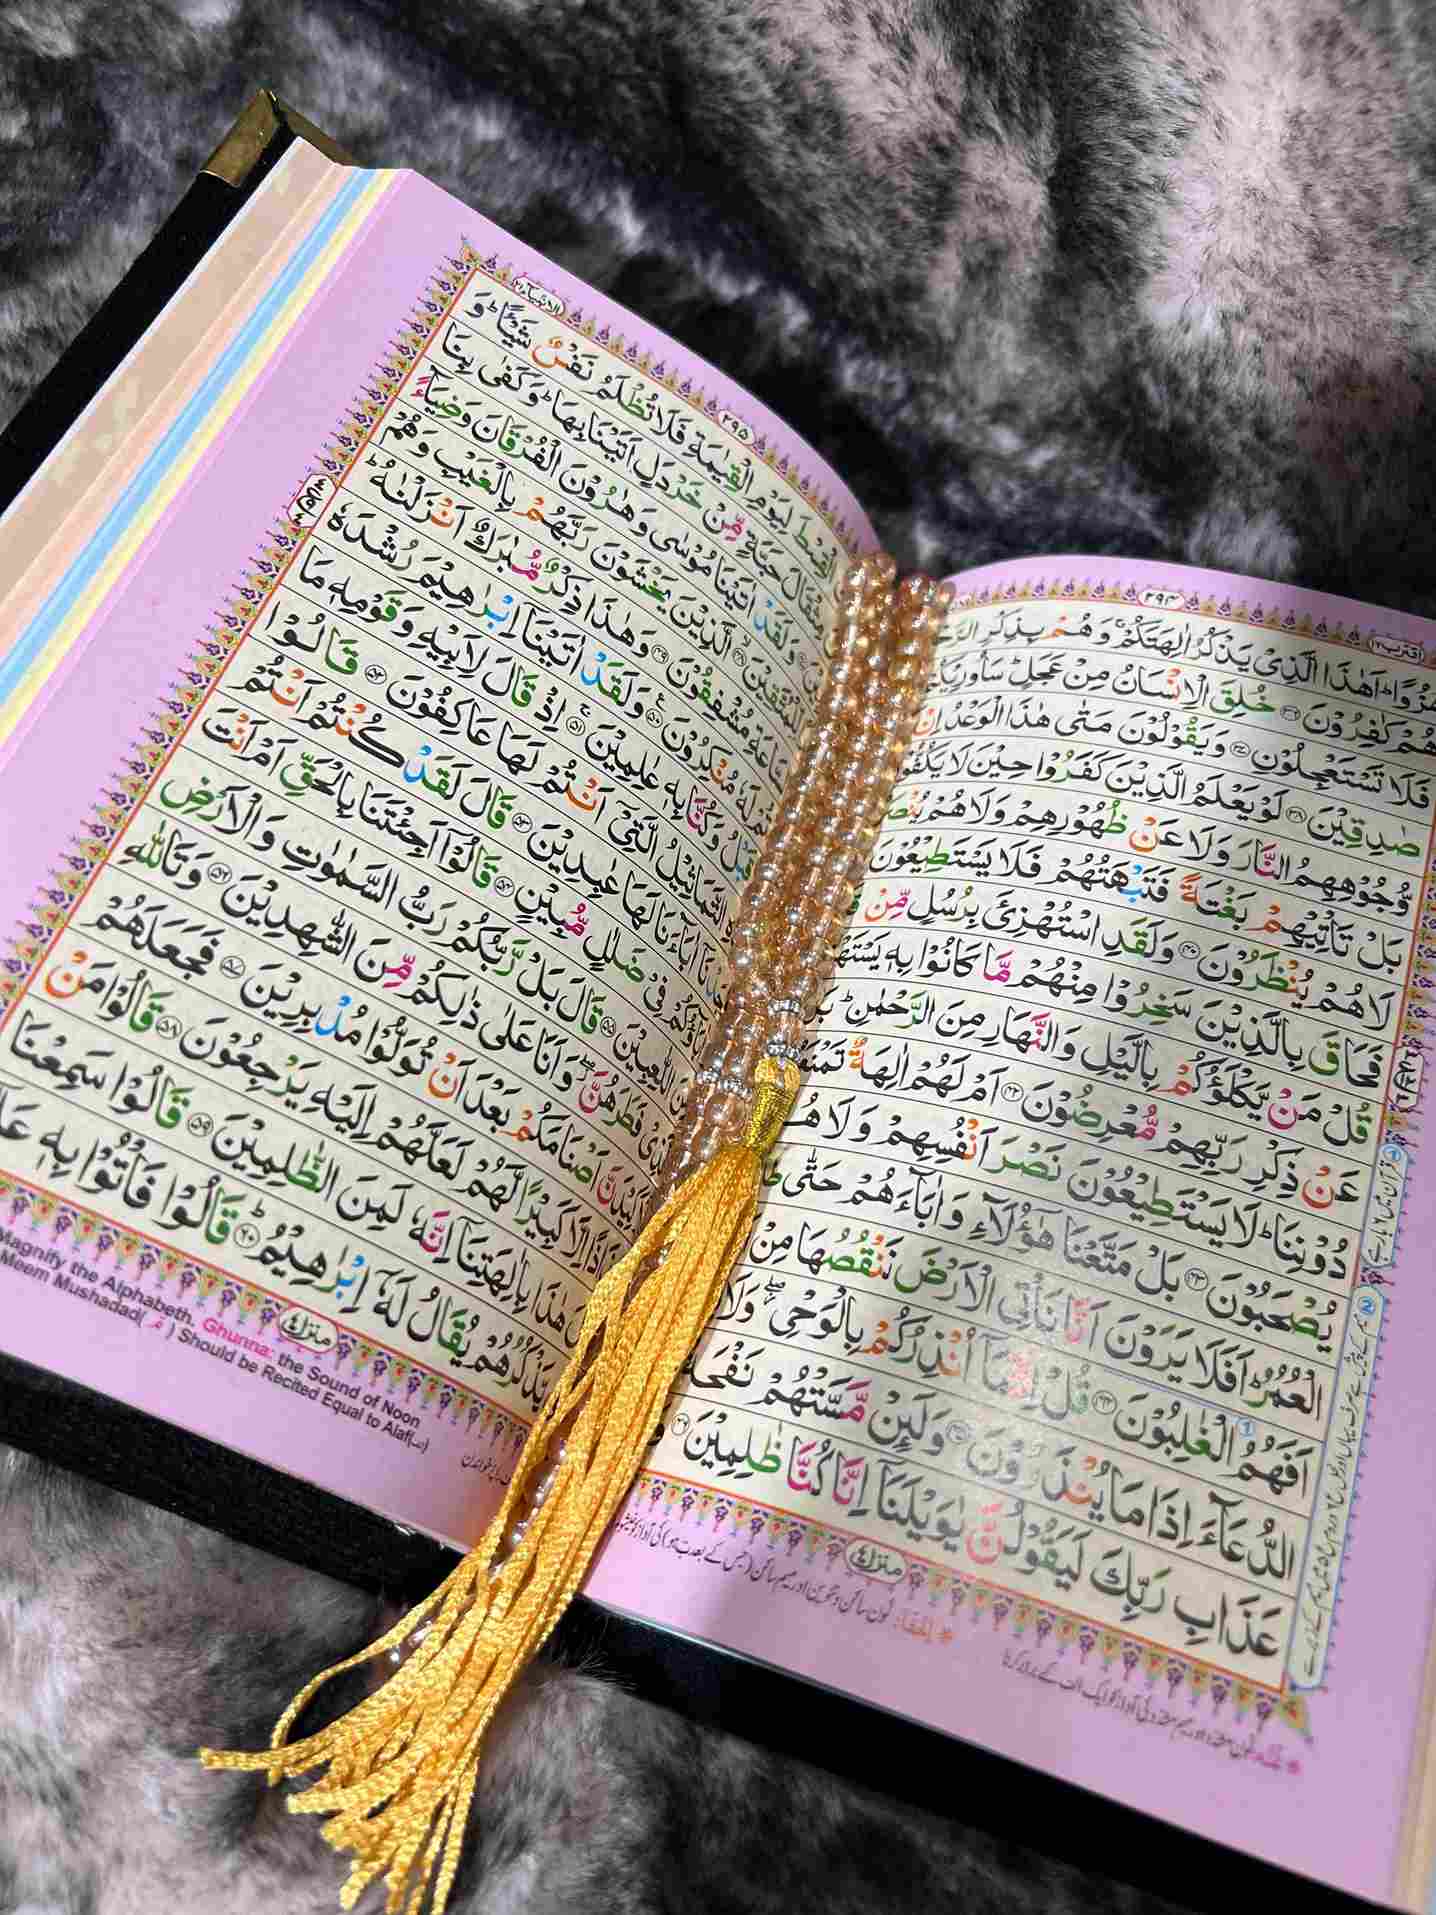 اقترب ١٧
٢٩٤
هُزُوًا ؕ اَهٰذَا الَّذِیْ یَذْكُرُ اٰلِهَتَكُمْ ۚ وَهُمْ بِذِكْرِ
هُمْ كٰفِرُوْنَ ﴿۳۶﴾ خُلِقَ الْاِنْسَانُ مِنْ عَجَلٍ ؕ
فَلَا تَسْتَعْجِلُوْنِ ﴿۳۷﴾ وَیَقُوْلُوْنَ مَتٰی هٰذَا الْوَعْدُ اِنْ
صٰدِقِیْنَ ﴿۳۸﴾ لَوْ یَعْلَمُ الَّذِیْنَ كَفَرُوْا حِیْنَ لَا
وُّجُوْهِهِمُ النَّارَ وَلَا عَنْ ظُهُوْرِهِمْ وَلَا هُمْ
بَلْ تَاْتِیْهِمْ بَغْتَةً فَتَبْهَتُهُمْ فَلَا یَسْتَطِیْعُوْنَ
لَا هُمْ یُنْظَرُوْنَ ﴿۴۰﴾ وَلَقَدِ اسْتُهْزِئَ بِرُسُلٍ مِّنْ
فَحَاقَ بِالَّذِیْنَ سَخِرُوْا مِنْهُمْ مَّا كَانُوْا بِهٖ
قُلْ مَنْ یَّكْلَؤُكُمْ بِالَّیْلِ وَالنَّهَارِ مِنَ الرَّحْمٰنِ ؕ
عَنْ ذِكْرِ رَبِّهِمْ مُّعْرِضُوْنَ ﴿۴۲﴾ اَمْ لَهُمْ اٰلِهَةٌ
دُوْنِنَا ؕ لَا یَسْتَطِیْعُوْنَ نَصْرَ اَنْفُسِهِمْ وَلَا
یُصْحَبُوْنَ ﴿۴۳﴾ بَلْ مَتَّعْنَا هٰۤؤُلَآءِ وَاٰبَآءَهُمْ حَتّٰی
الْعُمُرُ ؕ اَفَلَا یَرَوْنَ اَنَّا نَاْتِی الْاَرْضَ نَنْقُصُهَا مِنْ
اَفَهُمُ الْغٰلِبُوْنَ ﴿۴۴﴾ قُلْ اِنَّمَاۤ اُنْذِرُكُمْ بِالْوَحْیِ ۖ وَلَا
الدُّعَآءَ اِذَا مَا یُنْذَرُوْنَ ﴿۴۵﴾ وَلَئِنْ مَّسَّتْهُمْ نَفْحَةٌ
عَذَابِ رَبِّكَ لَیَقُوْلُنَّ یٰوَیْلَنَاۤ اِنَّا كُنَّا ظٰلِمِیْنَ ﴿۴۶﴾ وَ
منزل ٤
الانبیآء ٢١
٢٩٥
الْقِسْطَ لِیَوْمِ الْقِیٰمَةِ فَلَا تُظْلَمُ نَفْسٌ شَیْـًٔا ؕ وَ
مِثْقَالَ حَبَّةٍ مِّنْ خَرْدَلٍ اَتَیْنَا بِهَا ؕ وَكَفٰی بِنَا
وَلَقَدْ اٰتَیْنَا مُوْسٰی وَهٰرُوْنَ الْفُرْقَانَ وَضِیَآءً
لِّلْمُتَّقِیْنَ ﴿۴۸﴾ الَّذِیْنَ یَخْشَوْنَ رَبَّهُمْ بِالْغَیْبِ وَهُمْ
السَّاعَةِ مُشْفِقُوْنَ ﴿۴۹﴾ وَهٰذَا ذِكْرٌ مُّبٰرَكٌ اَنْزَلْنٰهُ ؕ
لَهٗ مُنْكِرُوْنَ ﴿۵۰﴾ وَلَقَدْ اٰتَیْنَاۤ اِبْرٰهِیْمَ رُشْدَهٗ
قَبْلُ وَكُنَّا بِهٖ عٰلِمِیْنَ ﴿۵۱﴾ اِذْ قَالَ لِاَبِیْهِ وَقَوْمِهٖ مَا
التَّمَاثِیْلُ الَّتِیْۤ اَنْتُمْ لَهَا عٰكِفُوْنَ ﴿۵۲﴾ قَالُوْا
اٰبَآءَنَا لَهَا عٰبِدِیْنَ ﴿۵۳﴾ قَالَ لَقَدْ كُنْتُمْ اَنْتُمْ
فِیْ ضَلٰلٍ مُّبِیْنٍ ﴿۵۴﴾ قَالُوْۤا اَجِئْتَنَا بِالْحَقِّ اَمْ اَنْتَ
اللّٰعِبِیْنَ ﴿۵۵﴾ قَالَ بَلْ رَّبُّكُمْ رَبُّ السَّمٰوٰتِ وَالْاَرْضِ
فَطَرَهُنَّ ۖ وَاَنَا عَلٰی ذٰلِكُمْ مِّنَ الشّٰهِدِیْنَ ﴿۵۶﴾ وَتَاللّٰهِ
اَصْنَامَكُمْ بَعْدَ اَنْ تُوَلُّوْا مُدْبِرِیْنَ ﴿۵۷﴾ فَجَعَلَهُمْ
جُذٰذًا اِلَّا كَبِیْرًا لَّهُمْ لَعَلَّهُمْ اِلَیْهِ یَرْجِعُوْنَ ﴿۵۸﴾ قَالُوْا مَنْ
هٰذَا بِاٰلِهَتِنَاۤ اِنَّهٗ لَمِنَ الظّٰلِمِیْنَ ﴿۵۹﴾ قَالُوْا سَمِعْنَا
یَّذْكُرُهُمْ یُقَالُ لَهٗۤ اِبْرٰهِیْمُ ﴿۶۰﴾ قَالُوْا فَاْتُوْا بِهٖ
منزل ٤
Magnify the Alphabeth. Ghunna: the Sound of Noon
Meem Mushadad( مّ ) Should be Recited Equal to Alaf(